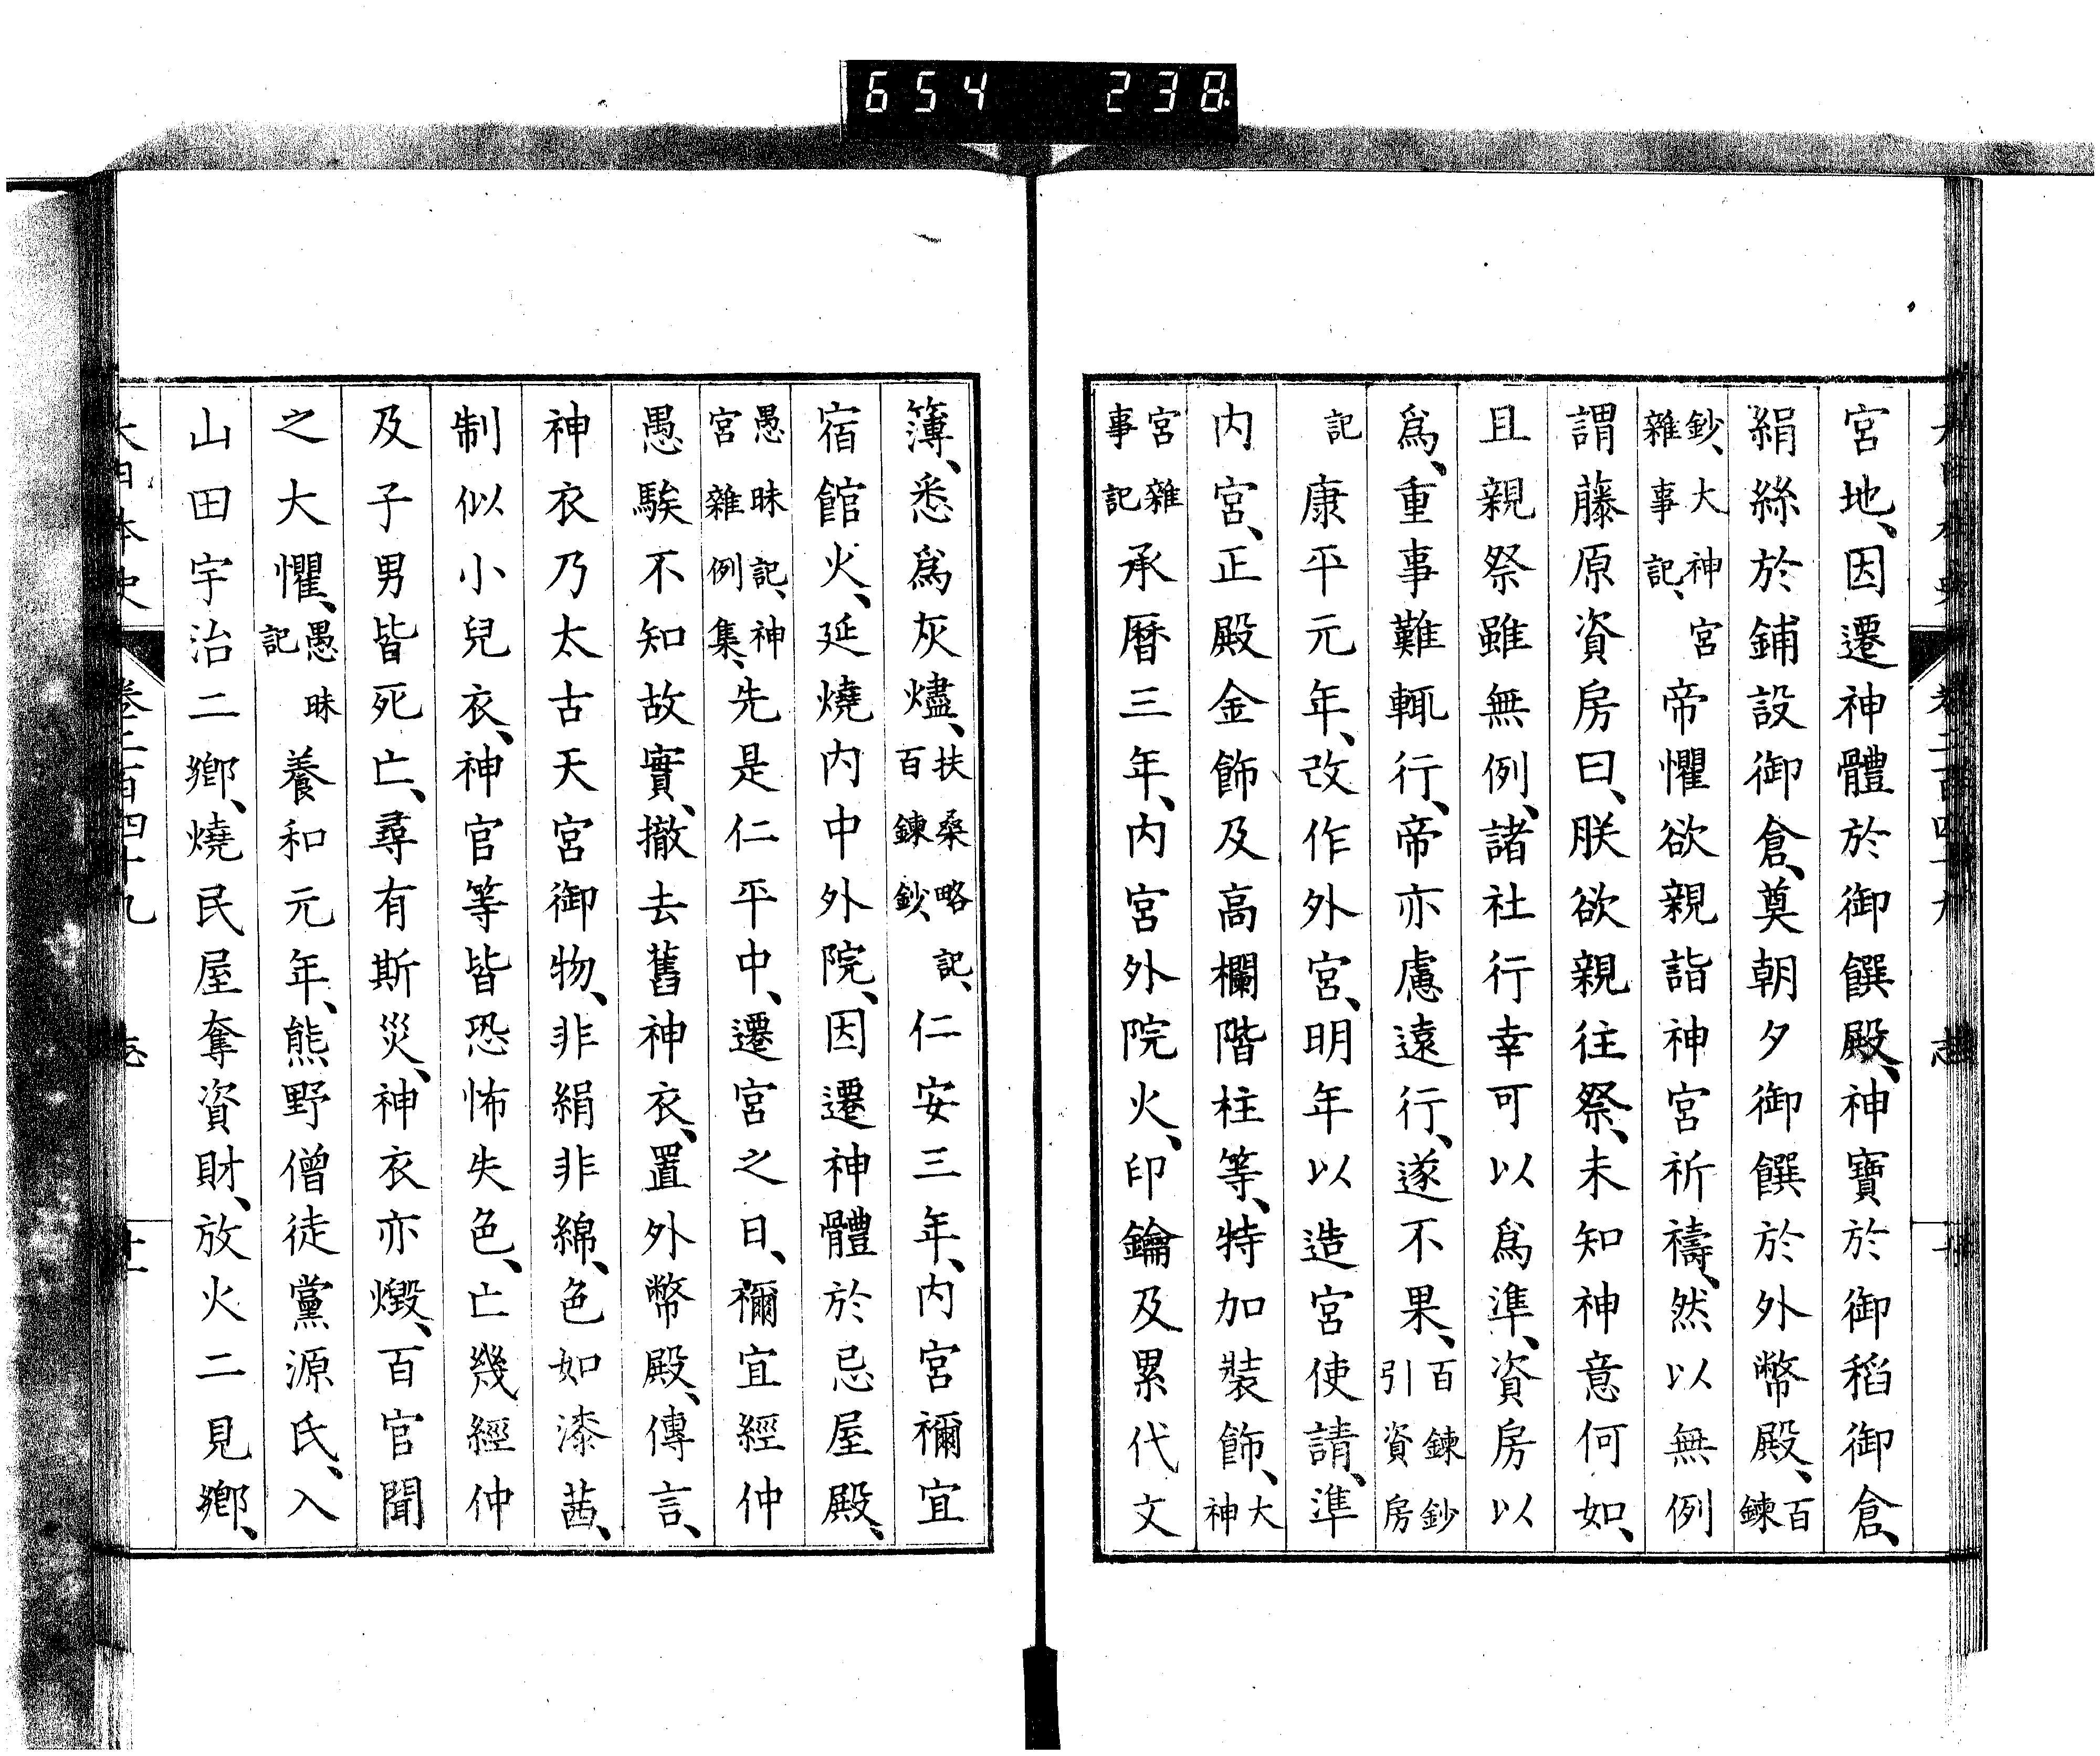 654 238
宮地、因遷神體於御饌殿、神寶於御稻御倉、
絹絲於鋪設御倉、奠朝夕御饌於外幣殿、百鍊
鈔、大神宮雜事記、帝懼欲親詣神宮祈禱、然以無例
謂藤原資房曰、朕欲親往祭、未知神意何如、
且親祭雖無例、諸社行幸可以爲準、資房以
爲、重事難輒行、帝亦慮遠行、遂不果、百鍊鈔引資房
記康平元年、改作外宮、明年以造宮使請、準
内宮、正殿金飾及高欄階柱等、特加裝飾、大神
宮雜事記承曆三年、内宮外院火、印鑰及累代文
簿、悉爲灰燼、扶桑略記、百鍊鈔、仁安三年、内宮禰宜
宿館火、延燒内中外院、因遷神體於忌屋殿、
愚昧記、神宮雜例集、先是仁平中、遷宮之日、禰宜經仲
愚騃不知故實、撤去舊神衣、置外幣殿、傳言、
神衣乃太古天宮御物、非絹非綿、色如漆茜、
制似小兒衣、神官等皆恐怖失色、亡幾經仲
及子男皆死亡、尋有斯災、神衣亦燬、百官聞
之大懼、愚昧記養和元年、熊野僧徒黨源氏、入
山田宇治二鄉、燒民屋奪資財、放火二見鄉、
大日本史 卷二百四十九 志